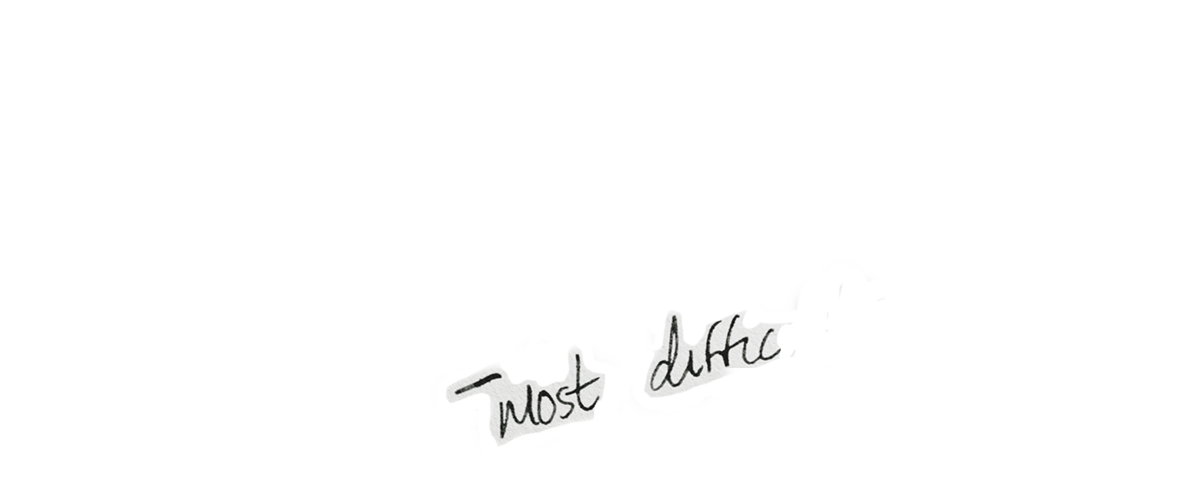 - most diffic